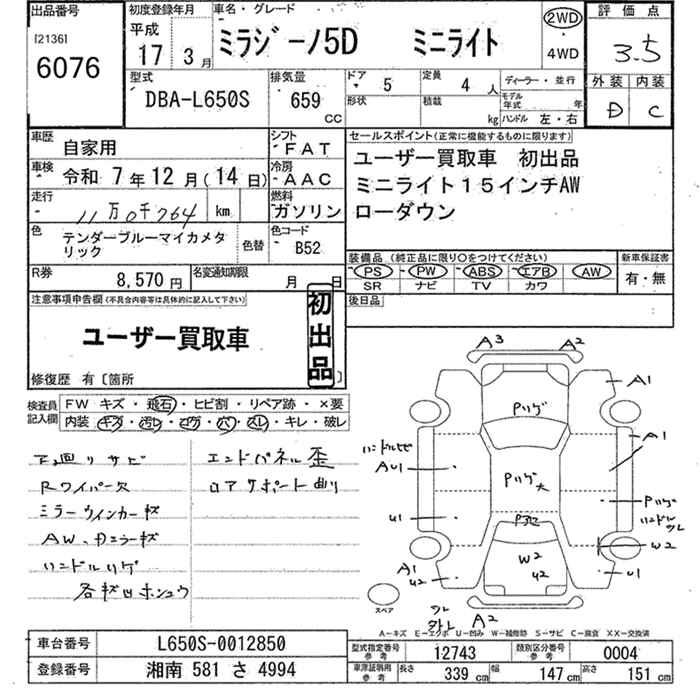 出品番号
[2136]
6076
初度登録年月
平成
17 3月
車名・グレード
ミラジーノ5D ミニライト
2WD
・
4WD
評価点
3.5
外装 内装
D C
型式
DBA-L650S
排気量
659
CC
ドア 5
形状
定員 4 人
積載 kg
ディーラー・並行
モデル年式 年
ハンドル 左・右
車歴 自家用
シフト FAT
車検 令和 7年12月(14日)
冷房 AAC
走行 11万0千764 km
燃料 ガソリン
色 テンダーブルーマイカメタリック
色替
色コード B52
R券 8,570 円
名変通知期限 月 日
セールスポイント(正常に機能するものに限ります)
ユーザー買取車 初出品
ミニライト15インチAW
ローダウン
装備品(純正品に限り○をつけてください)
PS PW ABS エアB AW
SR ナビ TV カワ
新車保証書
有・無
後日品
注意事項申告欄(不具合内容等は具体的に記入して下さい)
ユーザー買取車
初出品
修復歴 有〔箇所 〕
検査員記入欄
FW キズ・飛石・ヒビ割・リペア跡・×要
内装 キズ・汚レ・コゲ・穴・スレ・キレ・破レ
下廻りサビ
Rワイパー欠
ミラーウインカー杉
AW、カラー杉
ハンドルハゲ
エンドパネル歪
ロアサポート曲り
A3 A2
A1
Pハゲ
A1
ハンドルヒビ
AU1
Pハゲ大
Pハゲ
ハンドルスレ
U1
W2
W2
U2
A1
U2
U1
A2
スペア
A-キズ E-エクボ U-凹み W-補修跡 S-サビ C-腐食 XX-交換済
車台番号 L650S-0012850
登録番号 湘南 581 さ 4994
型式指定番号 参考 12743
類別区分番号 参考 0004
車庫証明用 参考 長さ 339 cm 幅 147 cm 高さ 151 cm